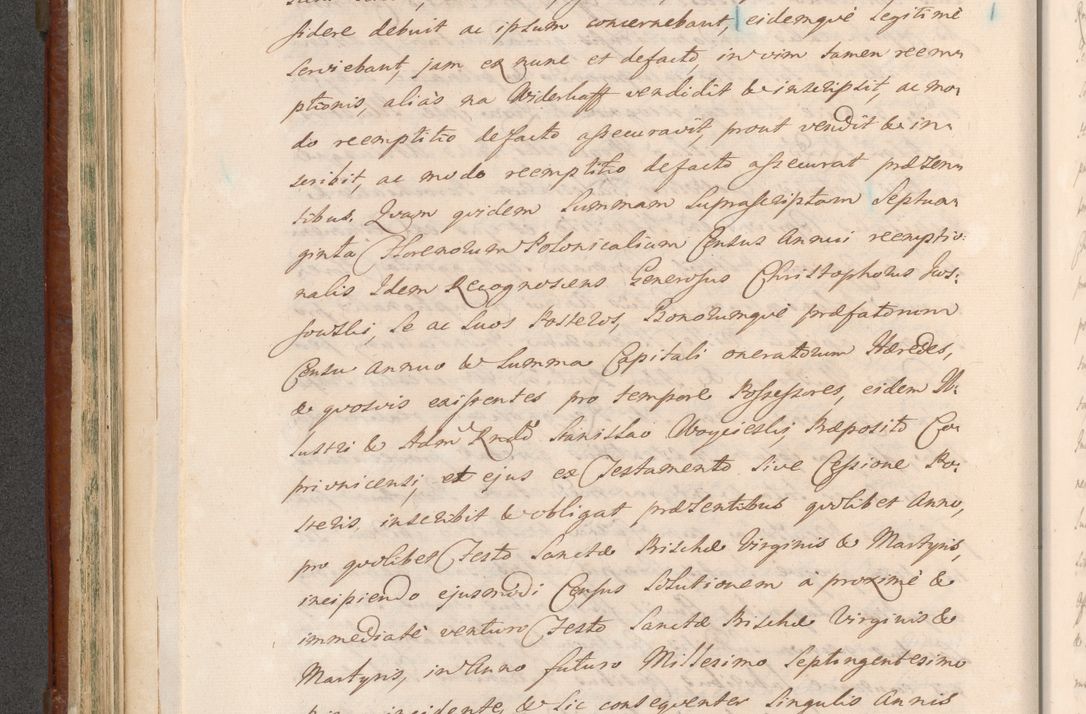 sidere debuit ac ipsum concernebant, eidemque legitimè
serviebant, jam ex nunc et defacto, in vim tamen reem-
ptionis, aliàs na Widerkaff vendidit & inscripsit, ac mo-
do reemptitio defacto assecuravit, prout vendit & in-
scribit, ac modo reemptitio defacto assecurat præsen-
tibus. Quam quidem Summam suprascriptam Septua-
ginta Florenorum Polonicalium Census Annui reemptio-
nalis Idem Recognoscens Generosus Christophorus
se ac suos Posteros, Bonorumque præfatorum
Censu annuo & Summa Capitali oneratorum Hæredes,
& quosvis existentes pro tempore Possessores, eidem Il-
lustri & Adm. Rndo Stanislao Woyciesky Præposito Co-
privnicensi, et ejus ex Testamento sive Cessione Po-
steris, inscribit & obligat præsentibus quolibet Anno,
pro quolibet Festo Sanctæ Priscæ Virginis & Martyris,
incipiendo ejusmodi Census Solutionem à proximè &
immediatè venturo Festo Sanctæ Priscæ Virginis &
Martyris, in Anno futuro Millesimo Septingentesimo
incidente, & sic consequenter Singulis Annis